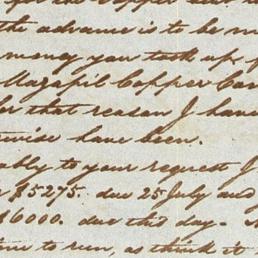 the advance is to be m
money you took up f
Mazapil Copper Com
that reason I hav
have been.
ably to your request I
$5275. due 25 July and
$6000. due this day.
to run, as think it